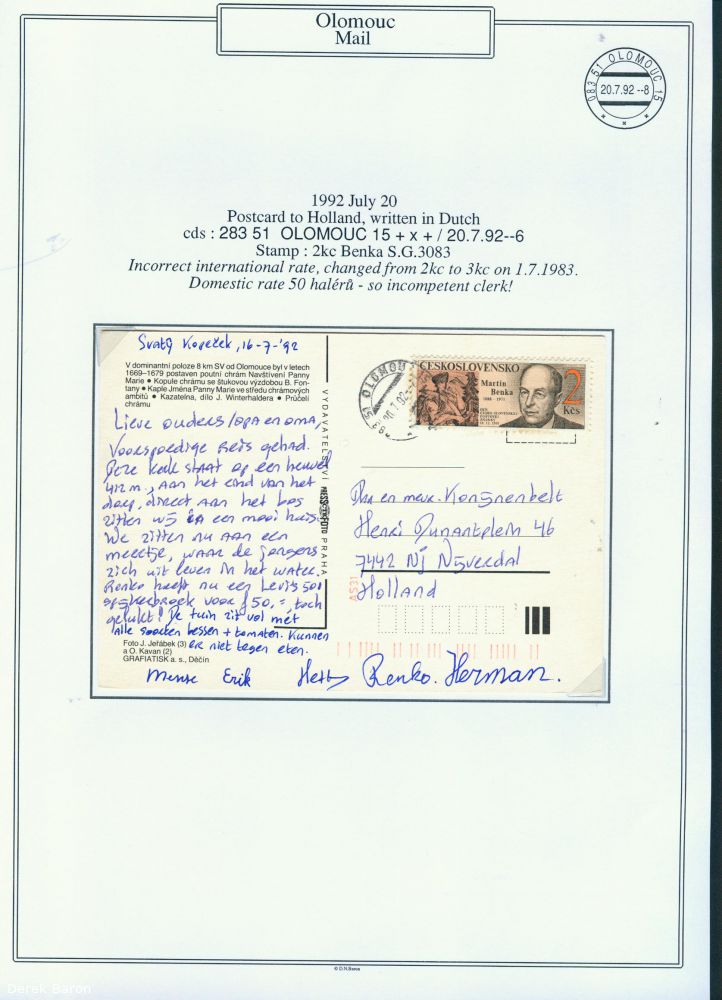 Olomouc
Mail
083 51 OLOMOUC 15
20.7.92 --8
1992 July 20
Postcard to Holland, written in Dutch
cds : 283 51 OLOMOUC 15 + x + / 20.7.92--6
Stamp : 2kc Benka S.G.3083
Incorrect international rate, changed from 2kc to 3kc on 1.7.1983.
Domestic rate 50 halérů - so incompetent clerk!
Svatý Kopeček, 16-7-'92
V dominantní poloze 8 km SV od Olomouce byl v letech
1669–1679 postaven poutní chrám Navštívení Panny
Marie • Kopule chrámu se štukovou výzdobou B. Fon-
tany • Kaple Jména Panny Marie ve středu chrámových
ambitů • Kazatelna, dílo J. Winterhaldera • Průčelí
chrámu
Lieve ouders/opa en oma,
Voorspoedige reis gehad.
Deze kerk staat op een heuvel
412 m., aan het eind van het
dorp, direct aan het bos
zitten wij in een mooi huis.
We zitten nu aan een
meertje, waar de jongens
zich uit leven in het water.
Renko heeft nu een Levis 501
spijkerbroek voor ƒ 50,=, toch
gelukt! De tuin zit vol mét
alle soorten bessen + tomaten. Kunnen
er niet tegen eten.
Foto J. Jeřábek (3)
a O. Kavan (2)
GRAFIATISK a. s., Děčín
Erik
Renko. Herman.
VYDAVATELSTVÍ
PRESSFOTO
PRAHA
51 OLOMOU
ČESKOSLOVENSKO
Martin
Benka
1888 - 1971
2
Kčs
Dhr en mevr. Konijnenbelt
Henri Dunantplein 46
7442 NJ Nijverdal
Holland
A531
© D.N.Baron
Derek Baron